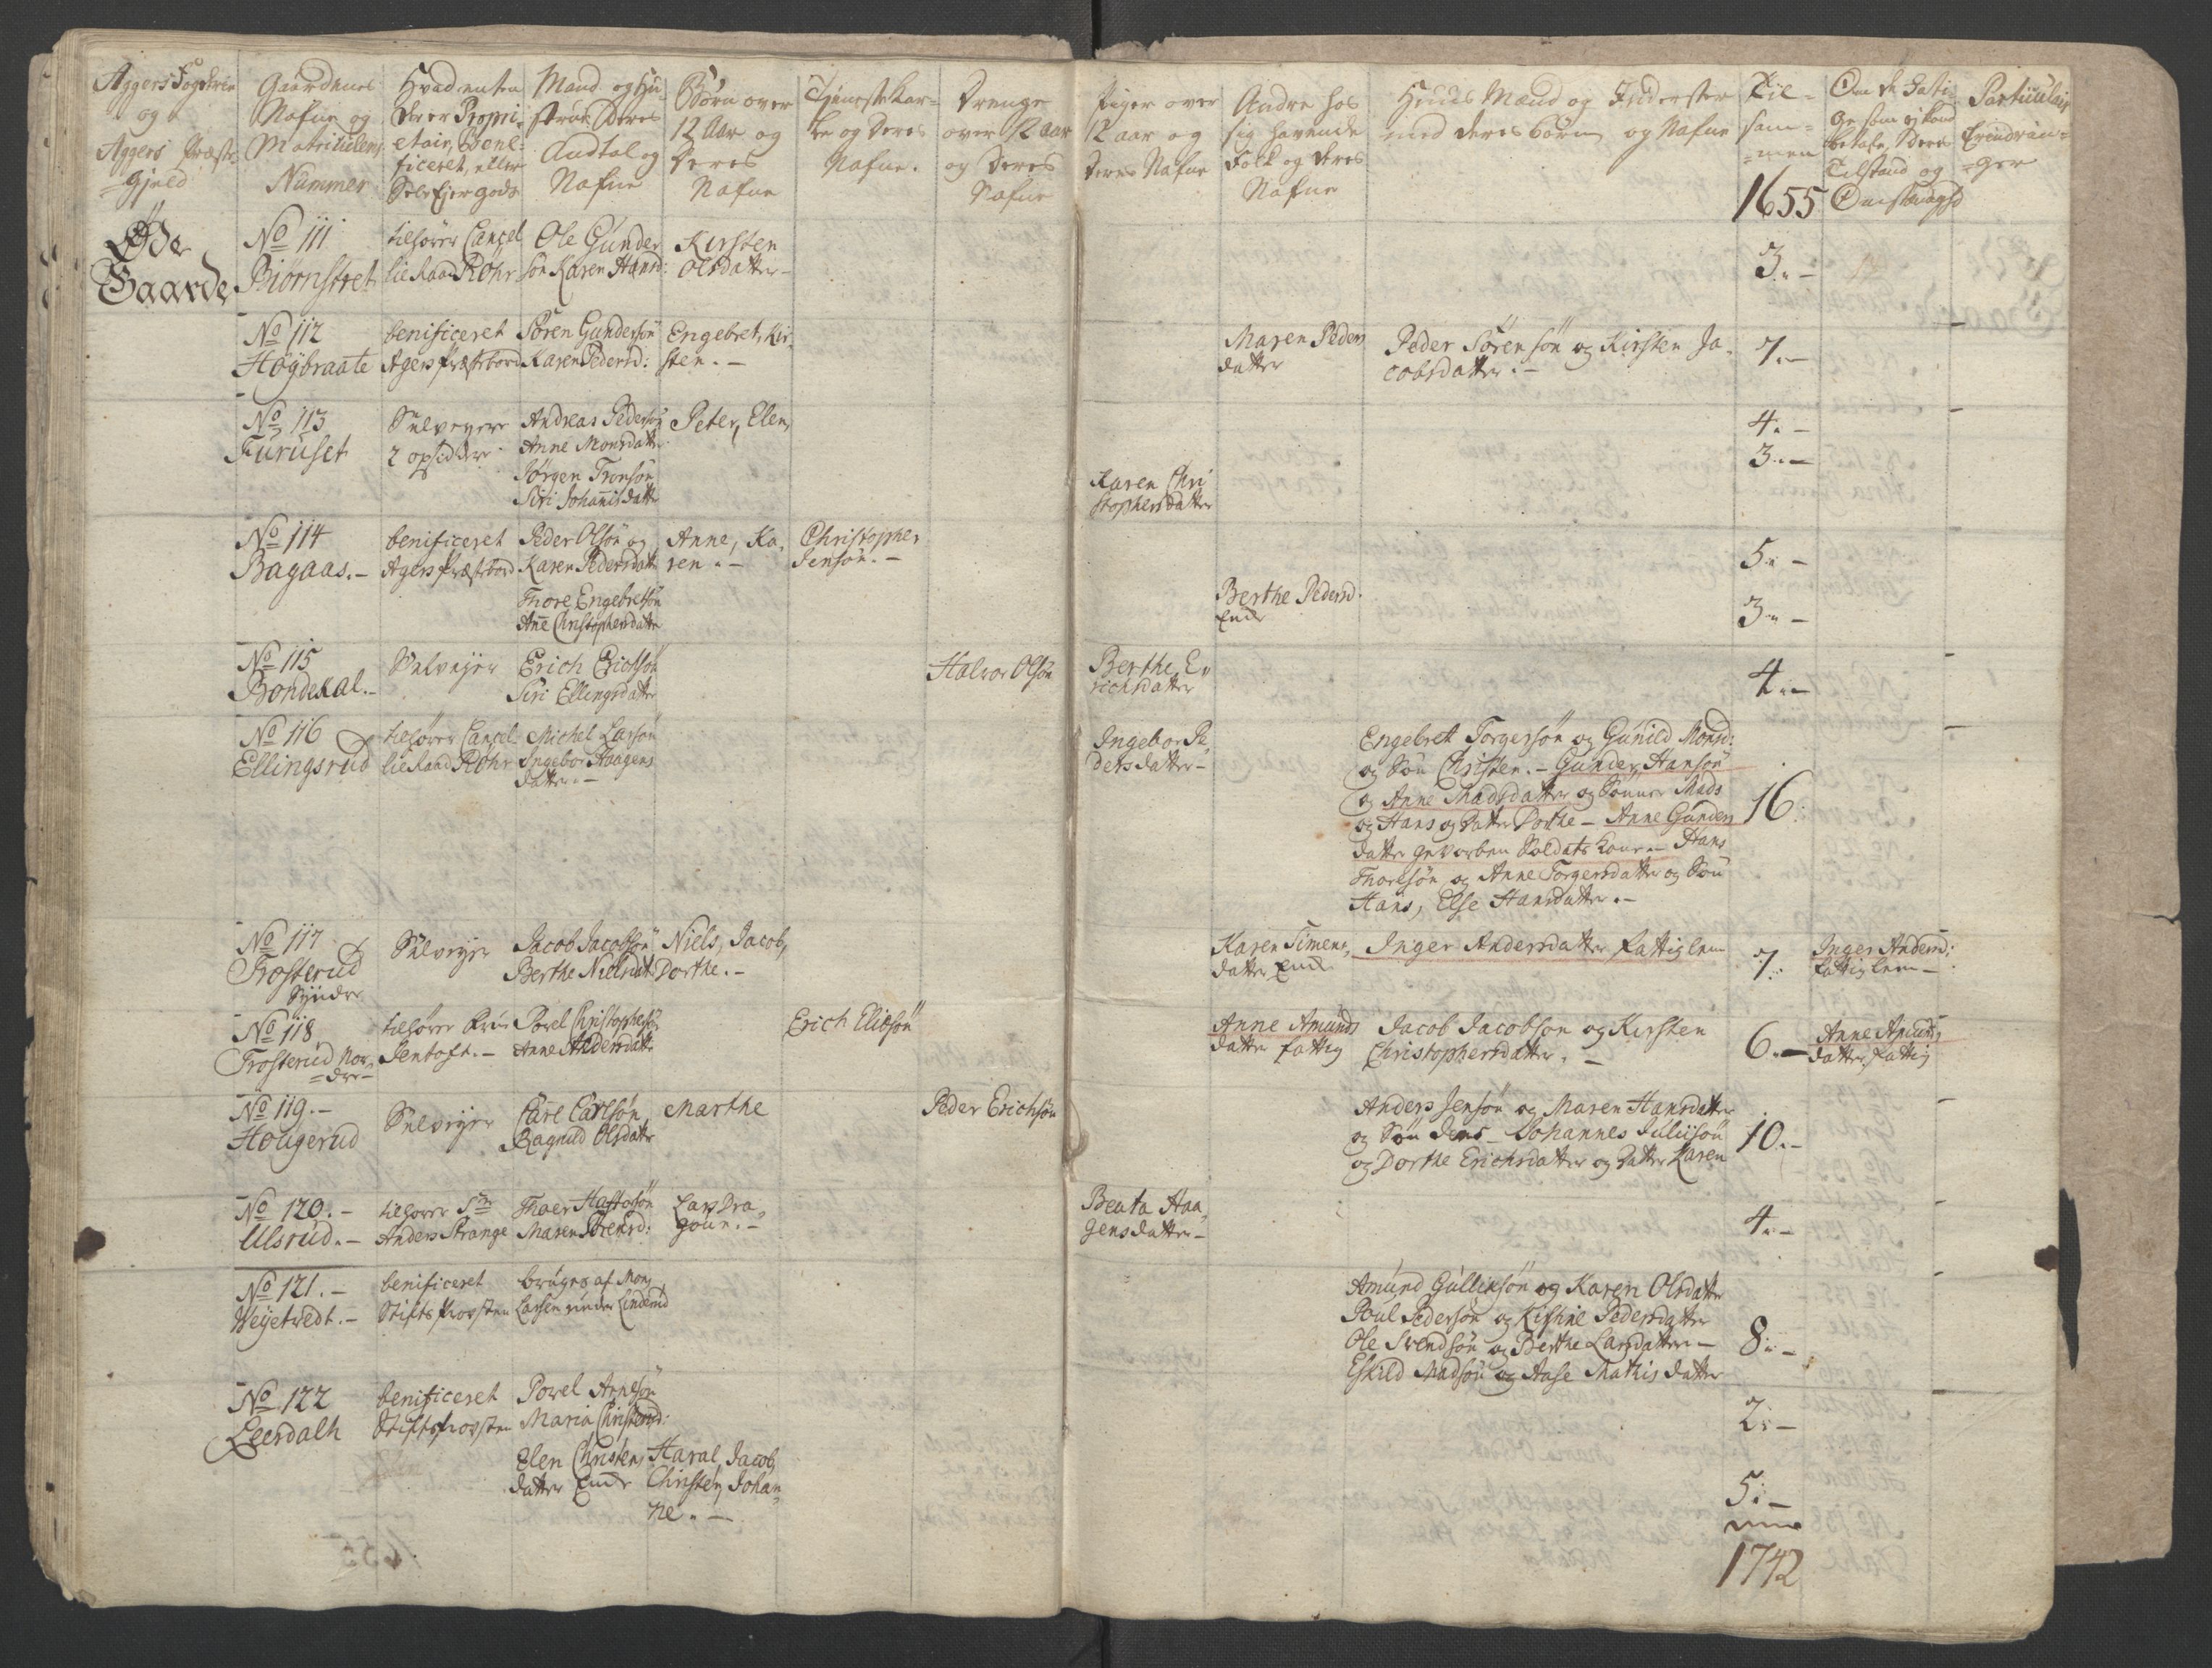 Aggers Fogderie
og
Aggers Præste
=Gjeld
Gaardenes
Nafne og
Matriculens
Nummer
Hvad enten
de er Propri-
etair, Bene-
ficeret, eller
Selv Ejer gods
Mand og Hu-
struer Deres
Andtal og
Nafne
Børn over
12 Aar og
Deres
Nafne
Tjeneste Kar-
le og Deres
Nafne.
Drenge
over 12 aar
og Deres
Nafne
Piger over
12 aar og
Deres Nafne
Andre hos
sig havende
Folk og deres
Nafne
Huus Mænd og Inderster
med deres børn og Nafne
Til-
sam-
=men
1655
Om de fatti-
ge som ej kand
betale, deres
Tilstand og
Omstændighd
Particulair
Erindrin-
=ger
Øde
Gaarde
No 111
Biørnstret
tilhører Cancel
lie Raad Röhr
Ole Gunder
søn Karen Hansd:
Kirsten
Olsdatter -
3.. -
No 112
Høybraate
benificeret
Agers Præstebord
Søren Gundersøn
Karen Pedersd:
Engebret, Kir-
sten. -
Maren Peders
datter
Peder Sørensøn og Kirsten Ja-
cobsdatter. -
7. -
No 113
Furuset
Selveyere
2 opsiddere
Andreas Pedersøn
Anne Monsdatter
Jørgen Tronsøn
Siri Johannisdatter
Peter, Elen,
Karen Chri
stophersdatter
4. -
3.. -
No 114
Bagaas. -
benificeret
Agers Præstebord
Peder Olsøn og
Karen Pedersdatter
Thore Engebretsøn
Anne Christophersdatter
Anne, Ka-
ren. -
Christopher
Jensøn. -
Berthe Pedersd.
Enke
5.. -
3.. -
No 115
Bondekal. -
Selveyer
Erich Ericssøn
Siri Ellingsdatter
Halvor Olsøn
Berthe Er
richsdatter
4.. -
No 116
Ellingsrud
tilhører Cancel
lie Raad Röhr
Michel Larsøn
Ingebor Haagens
datter. -
Ingebor Pe-
dersdatter -
Engebret Torgersøn og Gunild Monsd:
og Søn Christen. - Gunder Hansøn
og Anne Madsdatter og Sønner Mads
og Hans og datter Dorthe - Anne Gunders
datter gevorben Soldats kone - Hans
Thoresøn og Anne Torgersdatter og Søn
Hans, Else Hansdatter. -
16.
No 117
Trosterud
Syndre
Selveyer
Jacob Jacobsøn
Berthe Nielsdatter
Niels, Jacob,
Dorthe. -
Karen Simens-
datter Enke
Inger Andersdatter fattiglem
7.
Inger Andersd:
fattiglem -
No 118
Trosterud Nor-
=dre -
tilhører
Jentoft. -
Povel Christophersøn
Anne Andersdatter
Erich Eliesøn
Anne Amunds
datter fattig
Jacob Jacobson og Kirsten
Christophersdatter. -
6. -
Anne Amunds
datter fattig
No 119. -
Hougerud
Selveyer
Carl Carlsøn
Ragnild Olsdatter
Marthe
Peder Erichsøn
Anders Jensøn og Maren Hansdatter
og Søn Jens - Johannes Juliisøn
og Dorthe Erichsdatter og datter Karen
10. -
No 120. -
Ulsrud. -
tilhører Sr
Anders Prange
Thoer Haftorsøn
Maren Sørensd:
Lars Dra-
goun. -
Beata Haa-
gensdatter -
4.. -
No 121. -
Weyetvedt. -
benificeret
Stifts Provsten
bruges af Mons
Larsen under Linderud
Amund Gulliksøn og Karen Olsdatter
Poul Pedersøn og Kirstine Pedersdatter
Ole Svendsøn og Berthe Larsdatter -
Eskild Madsøn og Aase Mathis datter
8.. -
No 122
Leerdalh
benificeret
Stiftsprovsten
Povel Arnesøn
Maria Christensd:
2.. -
Elen Christens
datter Enke
Haral, Jacob,
Christen, Johan-
ne. -
5. -
1742